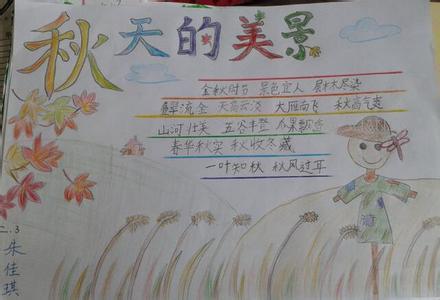 秋天的美景
金秋时节 景色宜人 层林尽染
流金 天高云淡 大雁南飞 秋高气爽
山河壮美 五谷丰登 瓜果飘香
春华秋实 秋收冬藏
一叶知秋 秋风过耳
二.3
朱佳琪